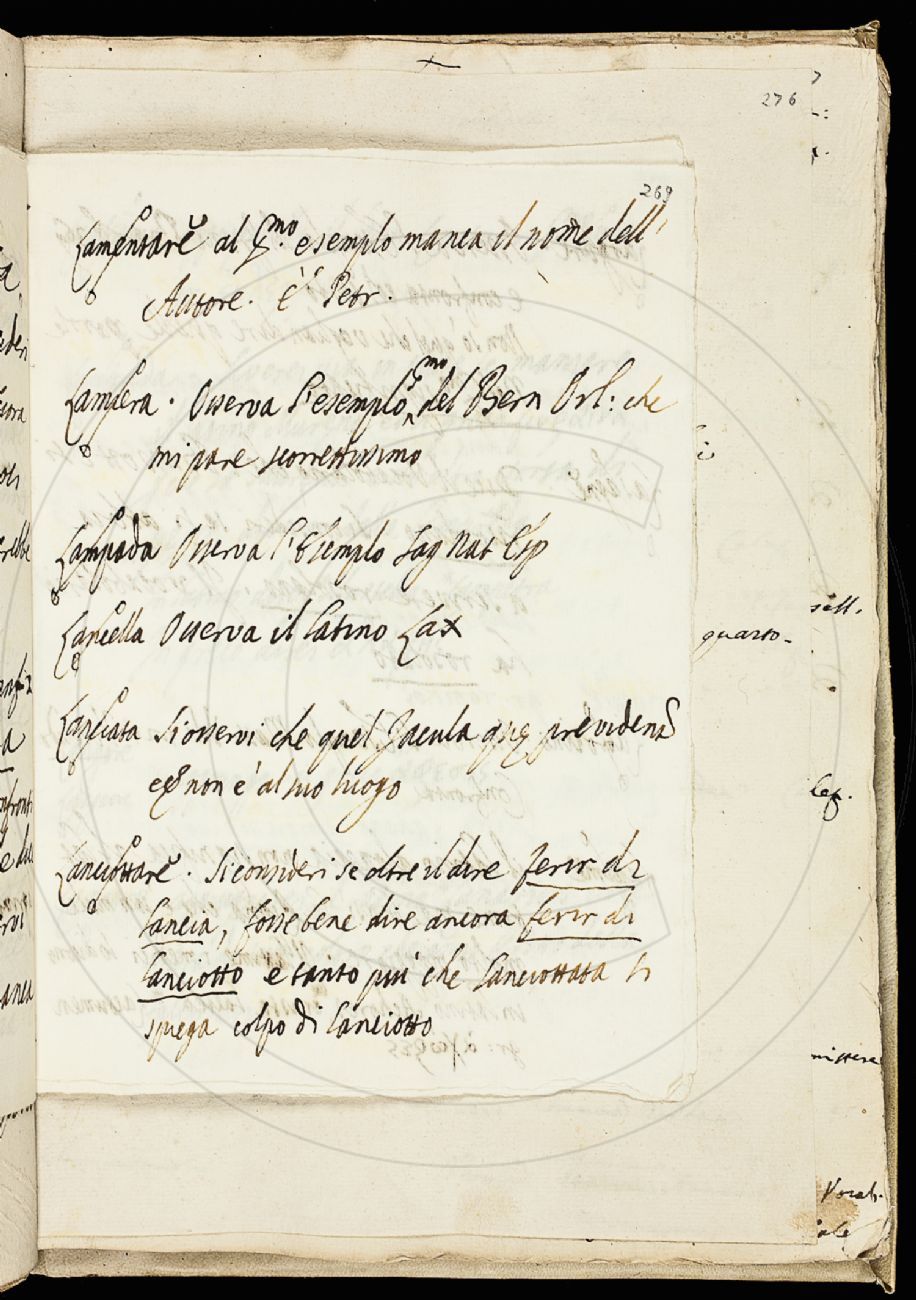 276
269
Lamentare al p.mo esemplo manca il nome dell'
Autore. è Petr.
Lampera. Osserva l'esemplo p.mo del Bern Orl: che
mi pare scorrettissimo
Lampada Osserva l'Esemplo Sag Nat Esp
Lancella Osserva il latino Lax
Lanciata Si osservi che quel Jacula previdena
non è al suo luogo
Lanciottare. Si consideri se oltre il dire ferir di
lancia, fosse bene dire ancora ferir di
lanciotto e tanto più che lanciottata si
spiega colpo di lanciotto
quarto.
sell.
Vocab.